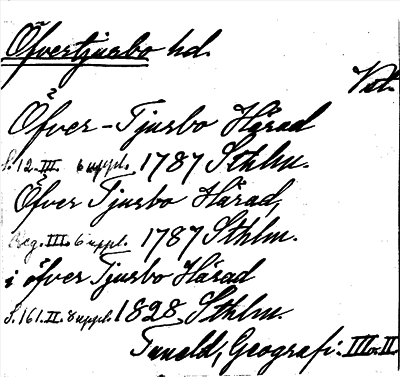 Öfvertjurbo hd.
Vst.
Öfver-Tjurbo Härad
S. 12. III. 6 uppl. 1787 Sthlm.
Öfver Tjurbo Härad,
Reg. III. 6 uppl. 1787 Sthlm.
i öfver Tjurbo Härad
S. 161. II. 8 uppl. 1828 Sthlm.
Tuneld, Geografi: III o. II